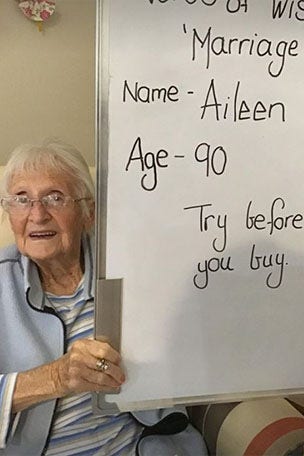 Words of Wisdom
'Marriage
Name - Aileen
Age - 90
Try before
you buy.